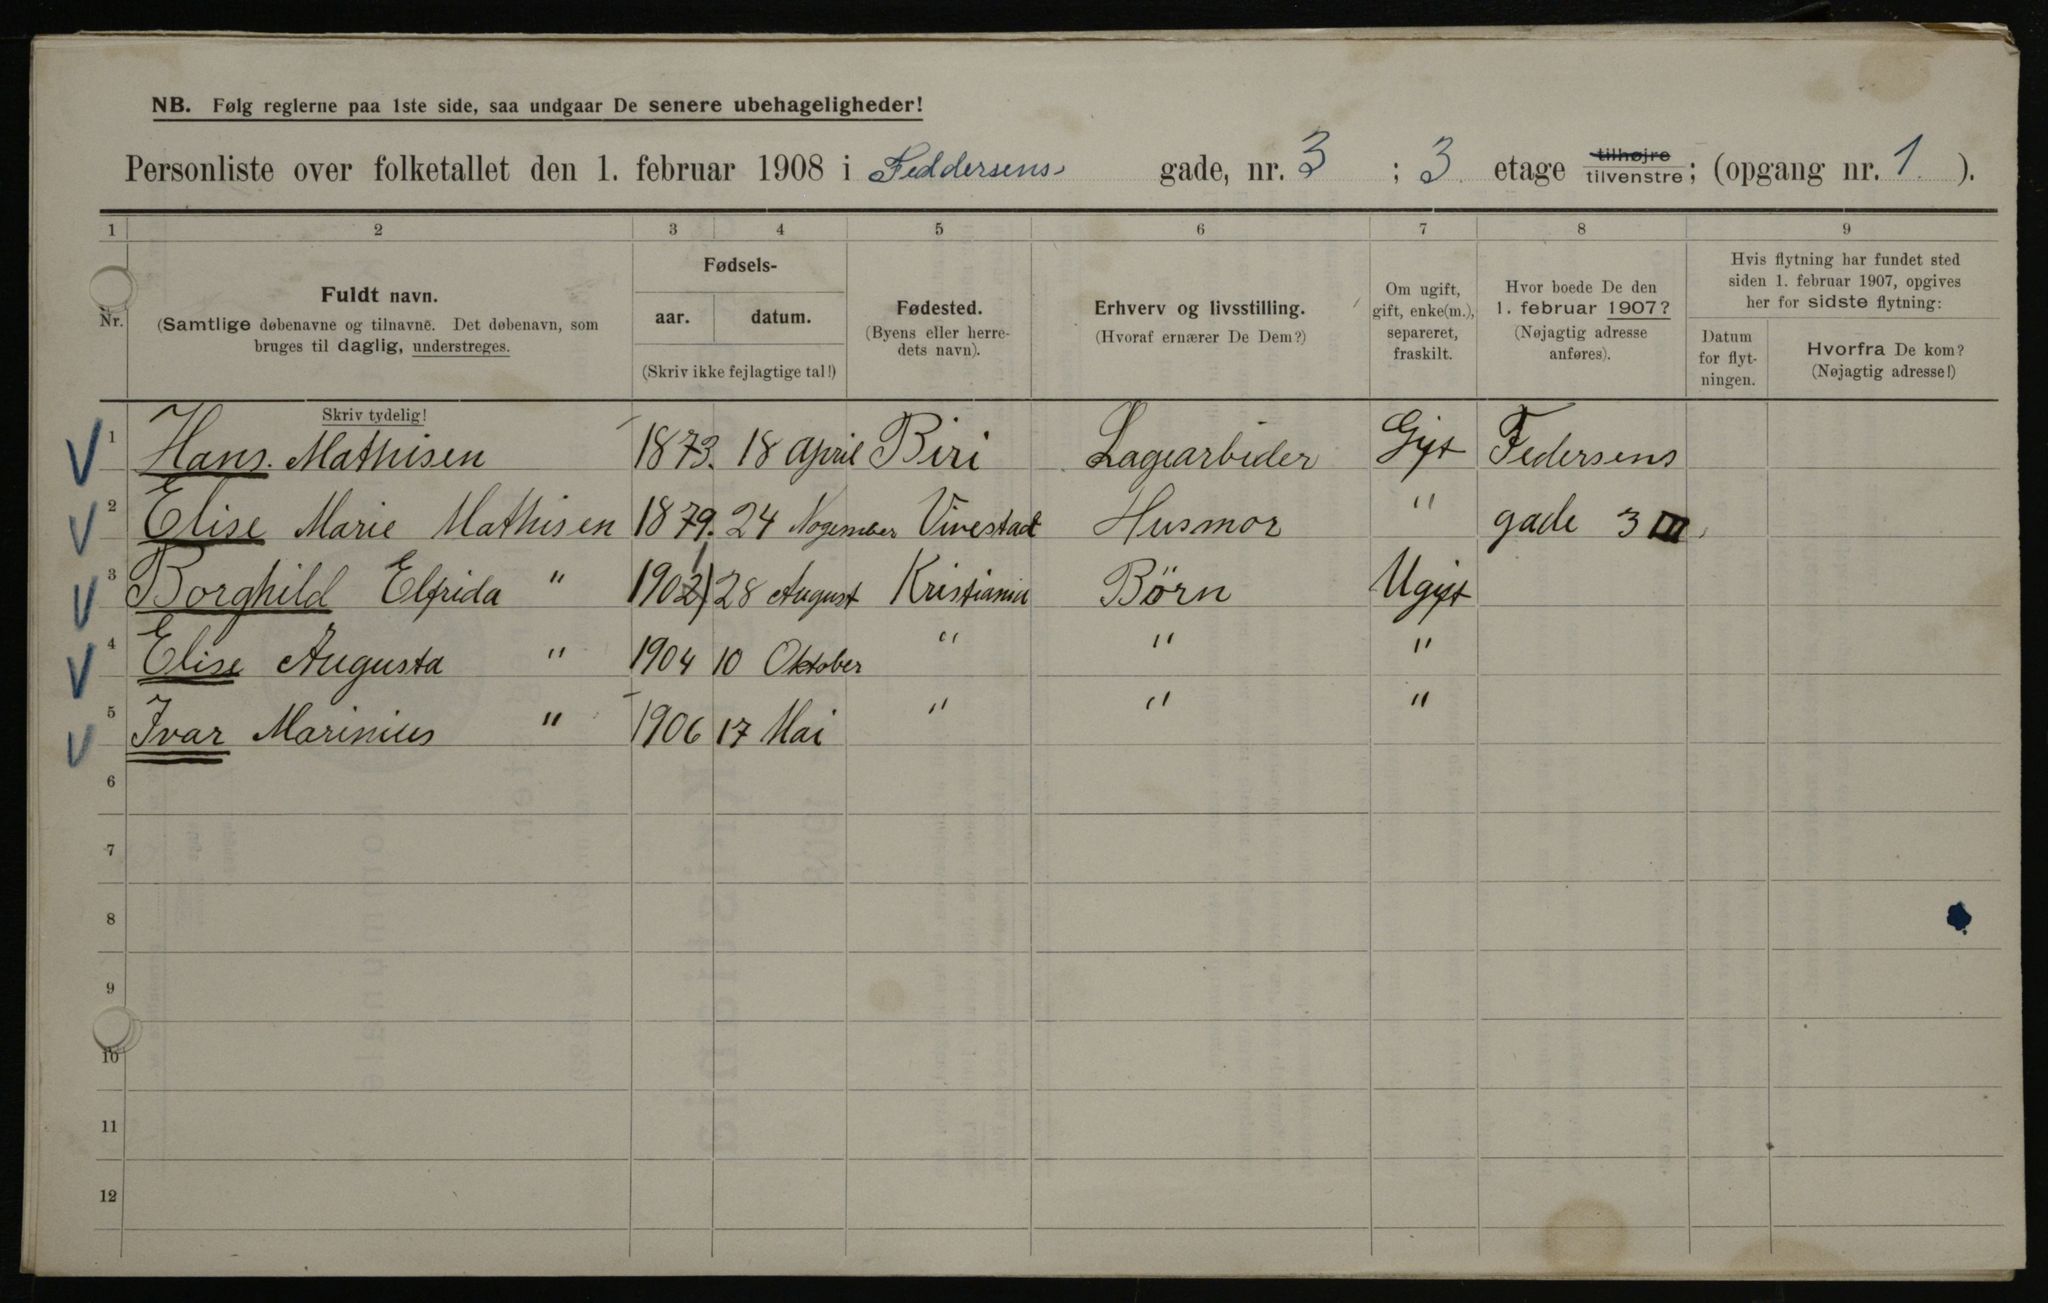 NB. Følg reglerne paa 1ste side, saa undgaar De senere ubehageligheder!
Personliste over folketallet den 1. februar 1908 i Feddersens gade, nr. 3 ; 3 etage tilhøjre tilvenstre; (opgang nr. 1 ).
1 2 3 4 5 6 7 8 9
Nr.
Fuldt navn.
(Samtlige døbenavne og tilnavne. Det døbenavn, som
bruges til daglig, understreges.
Skriv tydelig!
Fødsels-
aar. datum.
(Skriv ikke fejlagtige tal!)
Fødested.
(Byens eller herre-
dets navn).
Erhverv og livsstilling.
(Hvoraf ernærer De Dem?)
Om ugift,
gift, enke(m.),
separeret,
fraskilt.
Hvor boede De den
1. februar 1907?
(Nøjagtig adresse
anføres).
Hvis flytning har fundet sted
siden 1. februar 1907, opgives
her for sidste flytning:
Datum
for flyt-
ningen.
Hvorfra De kom?
(Nøjagtig adresse!)
1 Hans. Mathisen 1873. 18 April Biri Lagearbider Gift Federsens
2 Elise Marie Mathisen 1879. 24 Nogember Vivestad Husmor " gade 3 III
3 Borghild Elfrida " 1902 28 August Kristiania Børn Ugift
4 Elise Augusta " 1904 10 Oktober " " "
5 Ivar Marinius " 1906 17 Mai " " "
6
7
8
9
10
11
12